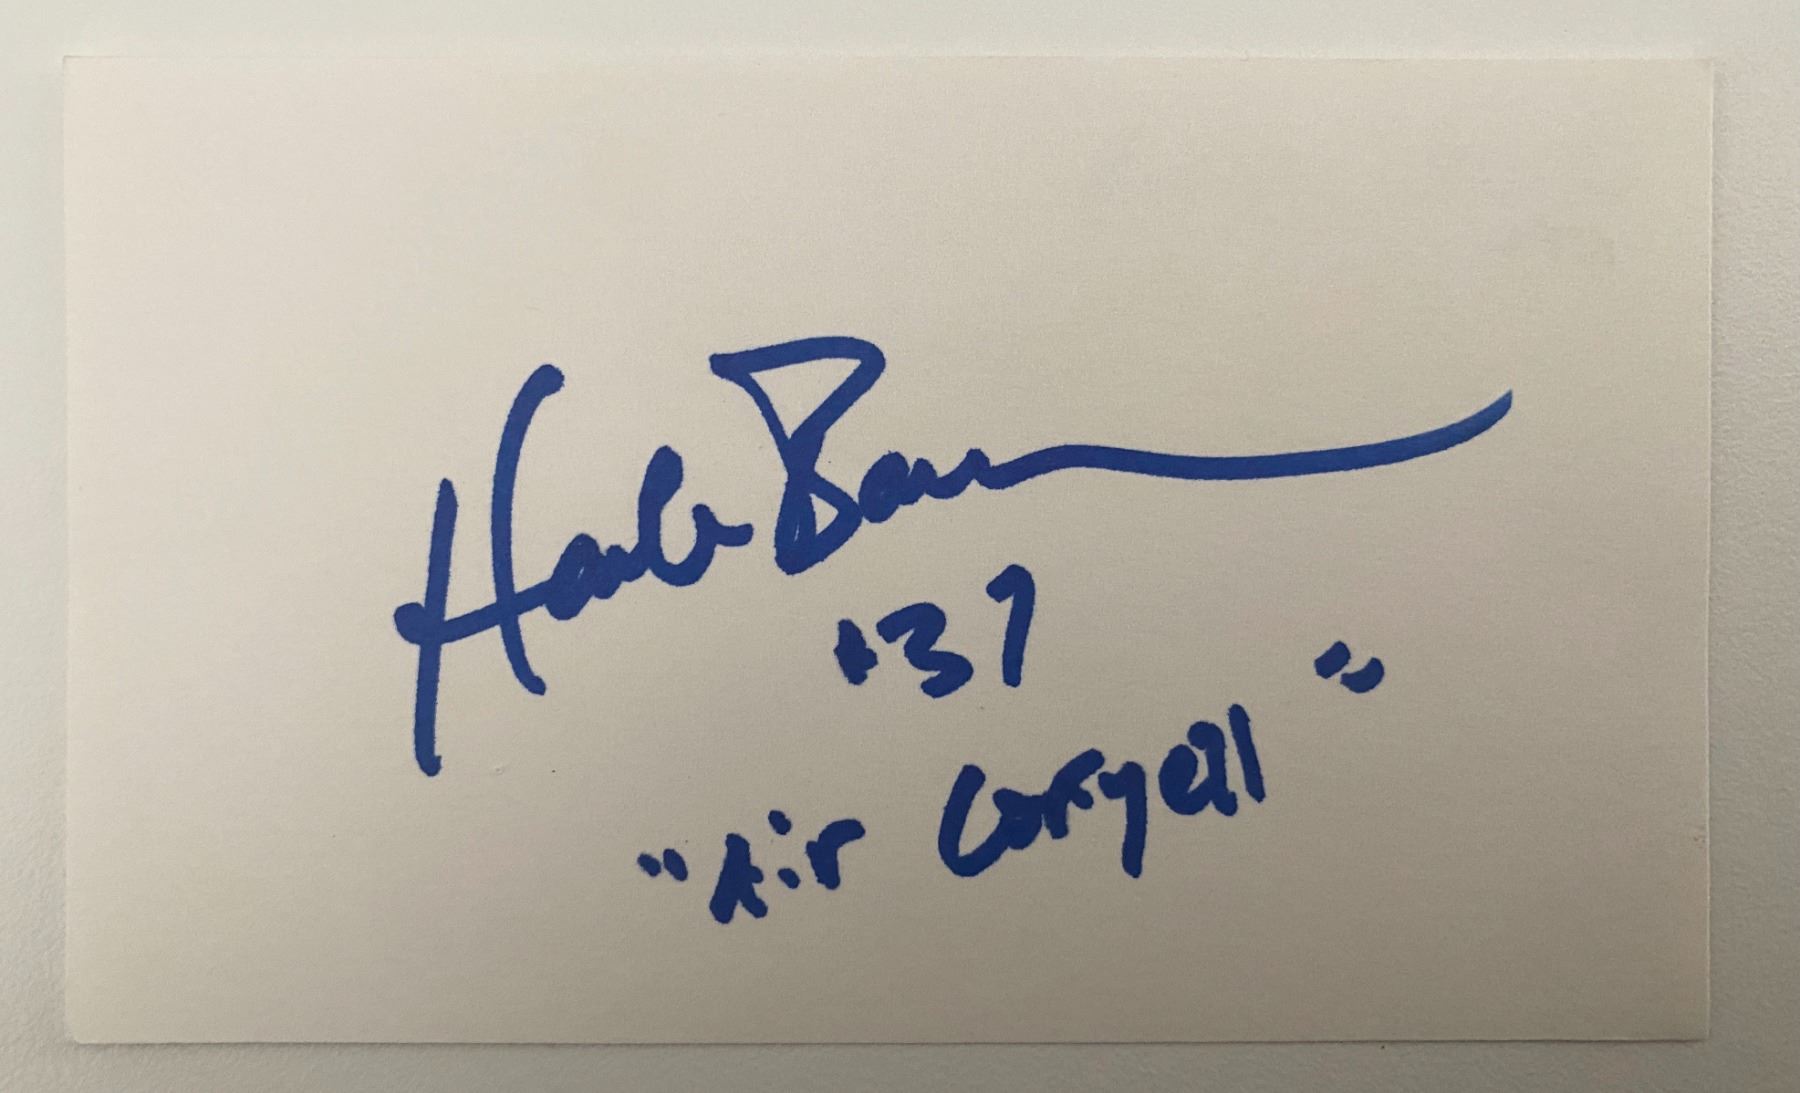 Hank Bauer
#37
"Air Coryell"